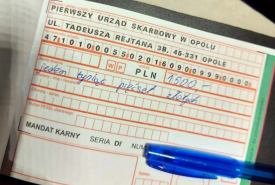 PIERWSZY URZĄD SKARBOWY W OPOLU
UL. TADEUSZA REJTANA 3B, 45-331 OPOLE
47101000550201609099990000
W P PLN 1500,-
jeden tysiąc pięćset złotych
MANDAT KARNY SERIA DI NUM